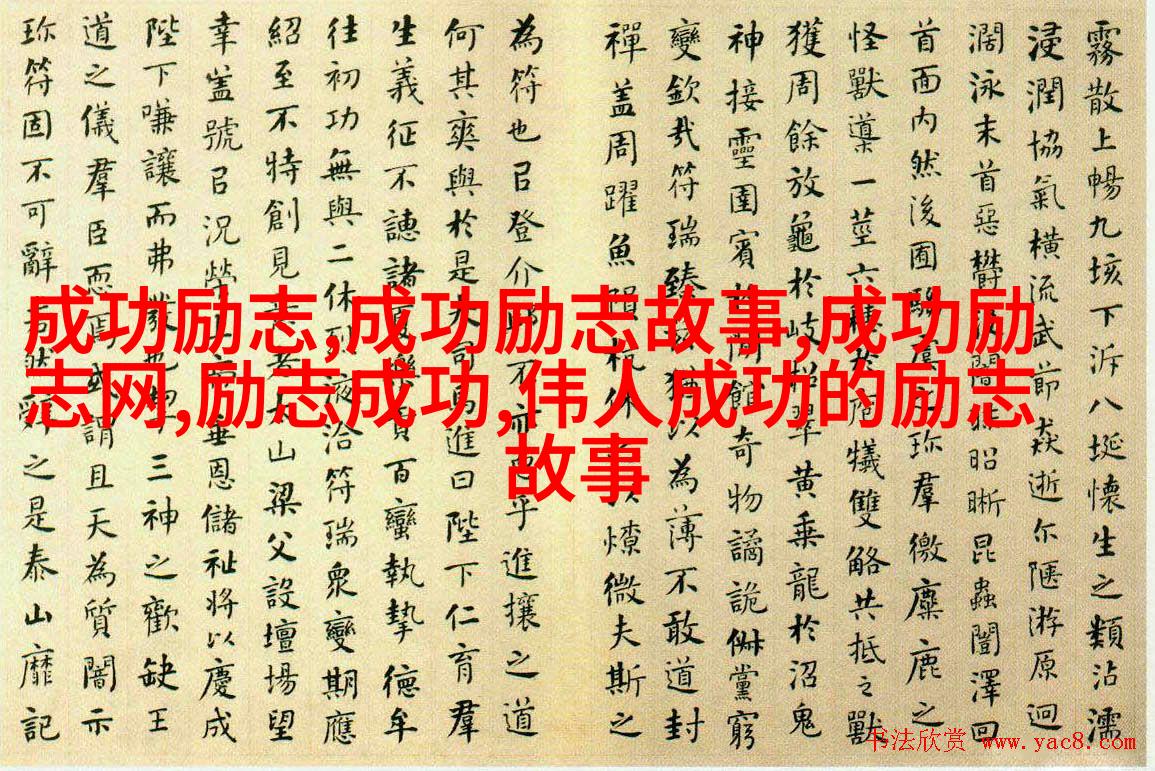 霧散上暢九垓下泝八埏懷生之類沾濡
浸潤協氣橫流武節猋逝尓陿游原迥
闊泳末首惡欝闇昧昭晰昆蟲闓澤回
首面內然後囿騶虞之珍羣徼麋鹿之
怪獸導一莖六穗於庖犧雙觡共抵之獸
獲周餘放龜於岐招翠黃乘龍於沼鬼
神接靈圉賓於閒館奇物譎詭俶黨窮
變欽哉符瑞臻茲猶以為薄不敢道封
禪盖周躍魚隕杭休之以燎微夫斯之
為符也㠯登介丘不亦恧乎進攘之道
何其爽與於是大司馬進曰陛下仁育羣
生義征不譓諸夏樂貢百蠻執摯德牟
往初功無與二休烈液洽符瑞眾變期應
紹至不特創見意者太山梁父設壇場望
幸盖號㠯況榮上帝垂恩儲祉將以慶成
陛下嗛讓而弗發也三神之歡缺王
道之儀羣臣恧焉或謂且天為質闇示
珍符固不可辭若然辭之是泰山靡記
成功励志,成功励志故事,成功励
志网,励志成功,伟人成功的励志
故事
书法欣赏 www.yac8.com